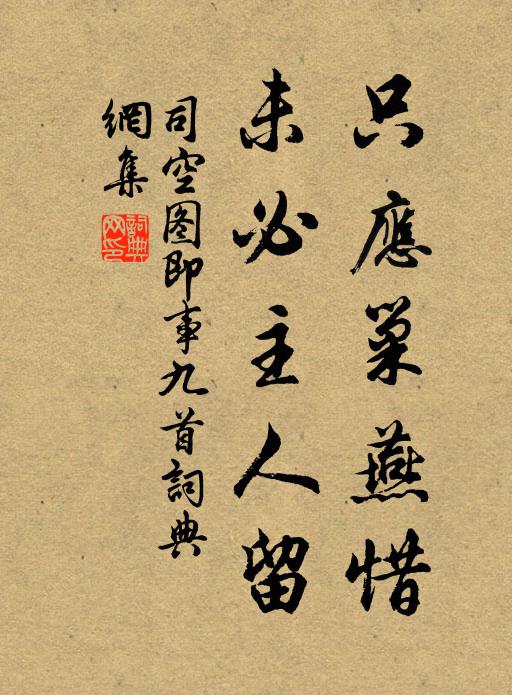 只應巢燕惜
未必主人留
司空图即事九首詞典
網集
詞典
网印